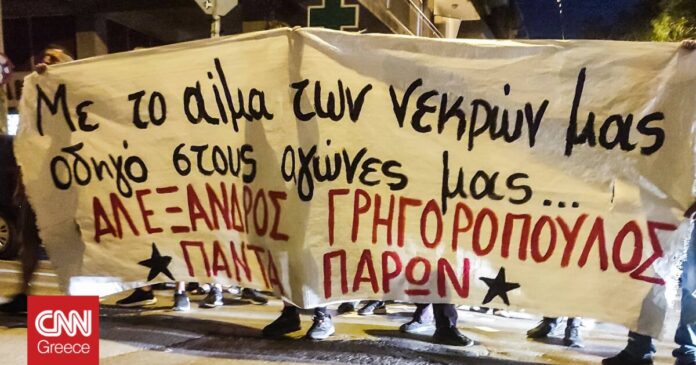 Με το αίμα των νεκρών μας
οδηγό στους αγώνες μας...
ΑΛΕΞΑΝΔΡΟΣ ΓΡΗΓΟΡΟΠΟΥΛΟΣ
ΠΑΝΤΑ ΠΑΡΩΝ
CNN
Greece